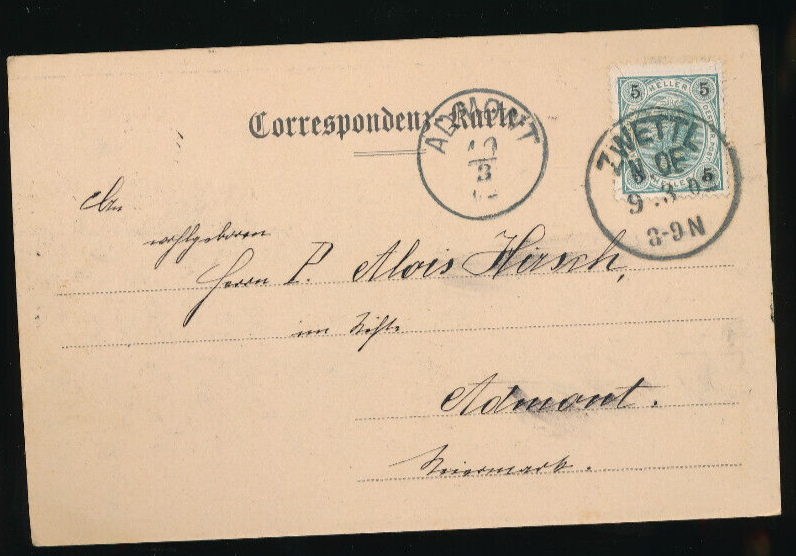 Correspondenz-Karte.
ADMONT
10
3
02
5 HELLER 5
5 HELLER 5
ZWETTL
N.OE
9.3.02
8-9N
An
wohlgeboren
Herrn P. Alois Hirsch,
im Stifte
Admont.
Steiermark.